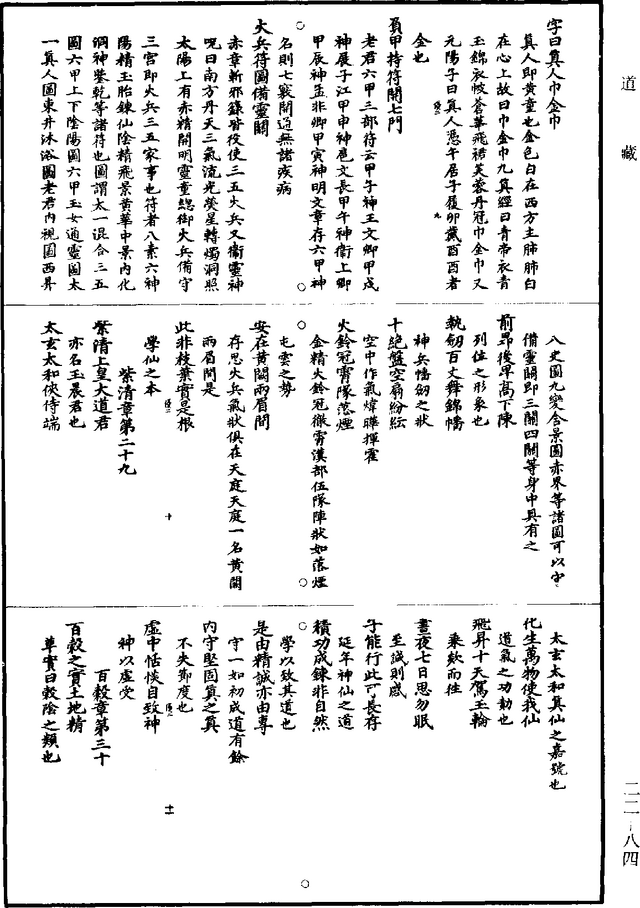 道藏
字曰真人巾金巾
真人即黃童也金色白在西方主肺肺白
在心上故曰巾金巾九真經曰青帝衣青
玉錦衣帔蒼華飛裙芙蓉丹冠巾金巾又
元陽子曰真人憑午居子履卯戴酉酉者
金也
負甲持符開七門
老君六甲三部符云甲子神王文卿甲戌
神展子江甲申神扈文長甲午神衛上卿
甲辰神孟非卿甲寅神明文章存六甲神
名則七竅開通無諸疾病
火兵符圖備靈關
赤章斬邪籙皆役使三五火兵又衛靈神
呪曰南方丹天三氣流光熒星轉燭洞照
太陽上有赤精開明靈童總御火兵備守
三宮即火兵三五家事也符者八素六神
陽精玉胎鍊仙陰精飛景黃華中景內化
洞神鑒乾等諸符也圖謂太一混合三五
圖六甲上下陰陽圖六甲玉女通靈圖太
一真人圖東井沐浴圖老君內視圖西昇
八史圖九變含景圖赤界等諸圖可以守
備靈關即三關四關等身中具有之
前昂後卑高下陳
列位之形象也
執劒百丈舞錦幡
神兵幡劒之狀
十絕盤空扇紛紜
空中作氣煒曄揮霍
火鈴冠霄隊落煙
金精火鈴冠徹霄漢部伍隊陣狀如落煙
屯雲之勢
安在黃闕兩眉間
存思火兵氣狀俱在天庭天庭一名黃闕
兩眉間是
此非枝葉實是根
學仙之本
紫清章第二十九
紫清上皇大道君
亦名玉晨君也
太玄太和俠侍端
太玄太和真仙之嘉號也
化生萬物使我仙
道氣之功動也
飛昇十天駕玉輪
乘欻而往
晝夜七日思勿眠
至誠則感
子能行此可長存
延年神仙之道
積功成鍊非自然
學以致其道也
是由精誠亦由專
守一如初成道有餘
內守堅固真之真
不失節度也
虛中恬惔自致神
神以虛受
百穀章第三十
百穀之實土地精
草實曰穀陰之類也
九
十
十一
二二-八四